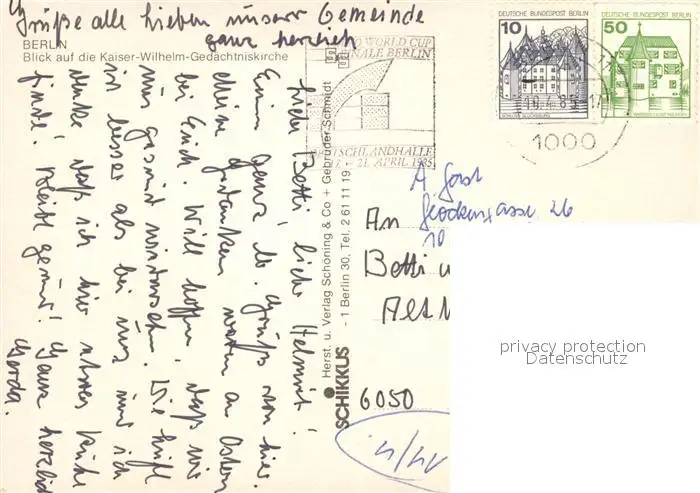 Grüße alle lieben unserer Gemeinde
ganz herzlich
BERLIN
Blick auf die Kaiser-Wilhelm-Gedächtniskirche
WORLD CUP
FINALE BERLIN
DEUTSCHLANDHALLE
21. APRIL 1985
DEUTSCHE BUNDESPOST BERLIN
10
SCHLOSS GLÜCKSBURG
DEUTSCHE BUNDESPOST BERLIN
50
1000
Liebe Betti, lieber Helmut!
Einen ganz lb. Gruß von hier.
Meine Gedanken waren an Ostern
bei Euch. Will hoffen, daß wir
uns gesund wiedersehen. Die Luft
ist besser als bei uns und ich
denke, daß ich hier etwas Ruhe
finde. Bleibt gesund! Ganz herzlich
Gerda.
Herst. u. Verlag Schöning & Co + Gebrüder Schmidt
SCHIKKUS - 1 Berlin 30, Tel. 2 61 11 19
Glockengasse 26
10
An
Betti u
6050
privacy protection
Datenschutz